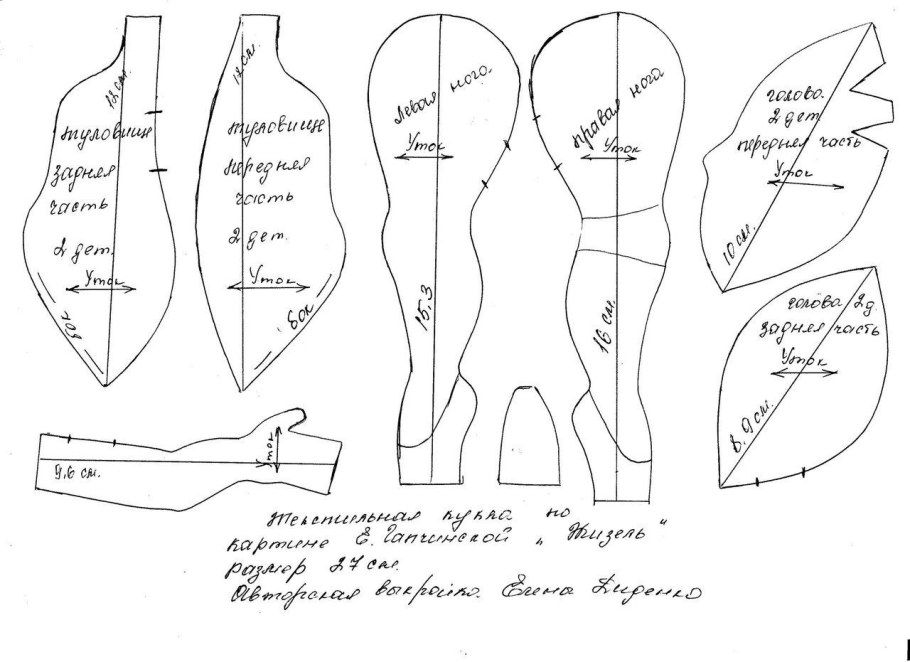 12 см.
туловище
задняя
часть
2 дет.
Уток
бок
12 см.
туловище
передняя
часть
2 дет.
Уток
бок
Левая нога.
Уток
15.3
правая нога
Уток
16 см.
голова.
2 дет.
передняя часть
Уток
10 см.
голова 2 д.
задняя часть
Уток
8,9 см.
9,6 см.
Уток
Текстильная кукла по
картине Е. Гапчинской „Жизель“
размер 27 см.
Авторская выкройка Елена Диденко